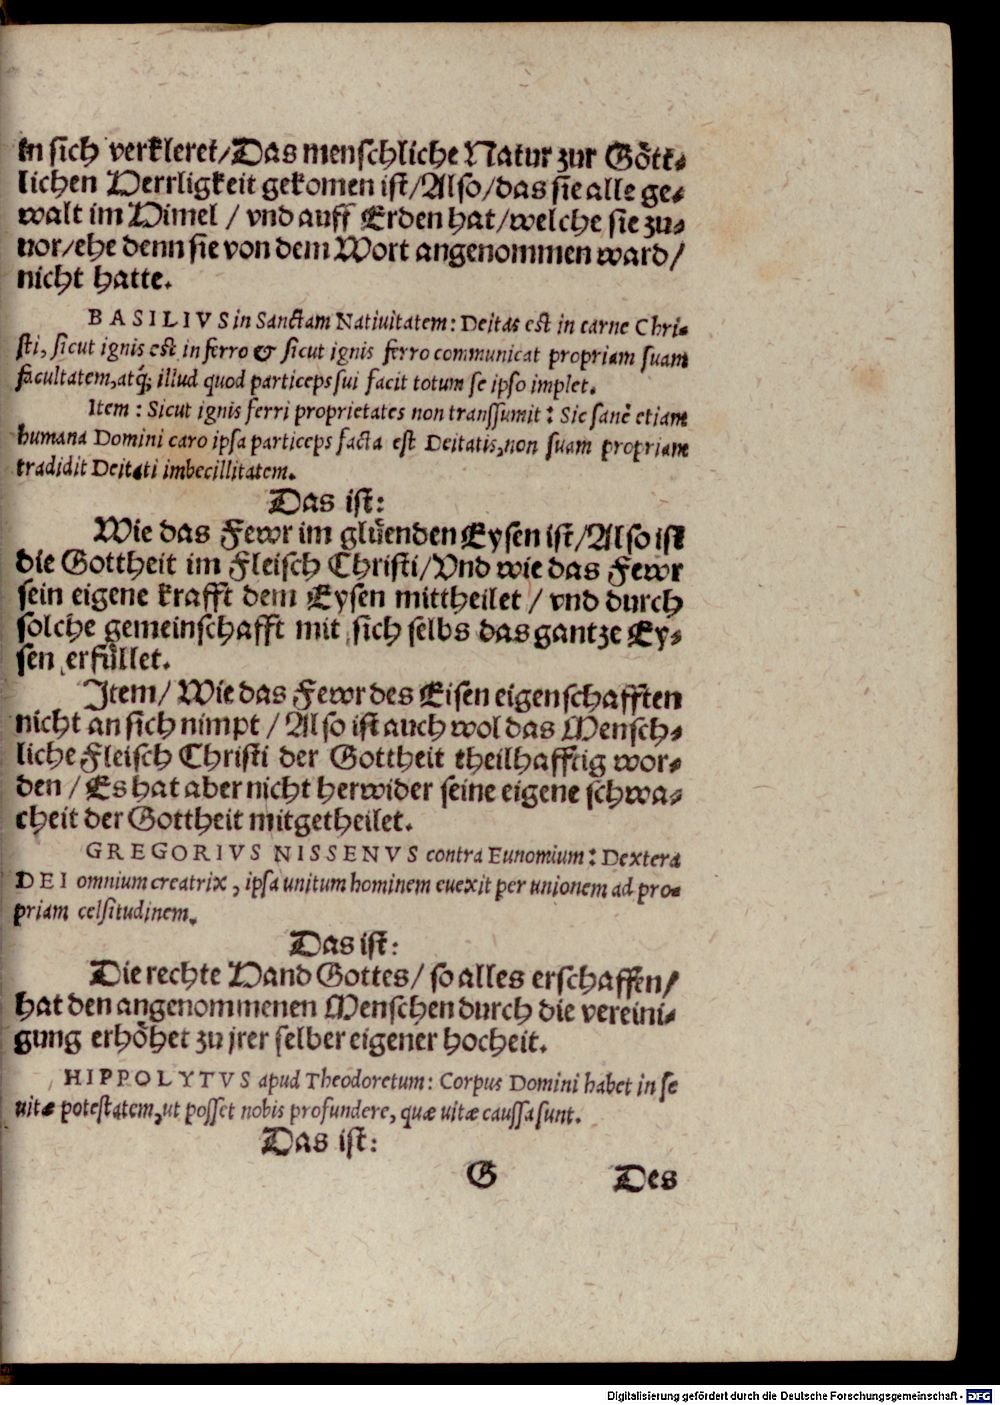 in sich verkleret/Das menschliche Natur zur Gött-
lichen Herrligkeit gekomen ist/Also/das sie alle ge-
walt im Himel / vnd auff Erden hat/welche sie zu-
uor/ehe denn sie von dem Wort angenommen ward/
nicht hatte.
BASILIVS in Sanctam Natiuitatem: Deitas est in carne Chri-
sti, sicut ignis est in ferro & sicut ignis ferro communicat propriam suam
facultatem, atq́; illud quod particeps sui facit totum se ipso implet.
Item : Sicut ignis ferri proprietates non transsumit: Sic sanè etiam
humana Domini caro ipsa particeps facta est Deitatis, non suam propriam
tradidit Deitati imbecillitatem.
Das ist:
Wie das Fewr im glüenden Eysen ist/Also ist
die Gottheit im Fleisch Christi/Vnd wie das Fewr
sein eigene krafft dem Eysen mittheilet / vnd durch
solche gemeinschafft mit sich selbs das gantze Ey-
sen erfüllet.
Item/ Wie das Fewr des Eisen eigenschafften
nicht an sich nimpt / Also ist auch wol das Mensch-
liche Fleisch Christi der Gottheit theilhafftig wor-
den / Es hat aber nicht herwider seine eigene schwa-
cheit der Gottheit mitgetheilet.
GREGORIVS NISSENVS contra Eunomium: Dextera
DEI omnium creatrix, ipsa unitum hominem euexit per unionem ad pro-
priam celsitudinem.
Das ist:
Die rechte Hand Gottes/ so alles erschaffen/
hat den angenommenen Menschen durch die vereini-
gung erhöhet zu jrer selber eigener hocheit.
HIPPOLYTVS apud Theodoretum: Corpus Domini habet in se
uitæ potestatem, ut posset nobis profundere, quæ uitæ caussa sunt.
Das ist:
G Des
Digitalisierung gefördert durch die Deutsche Forschungsgemeinschaft - DFG